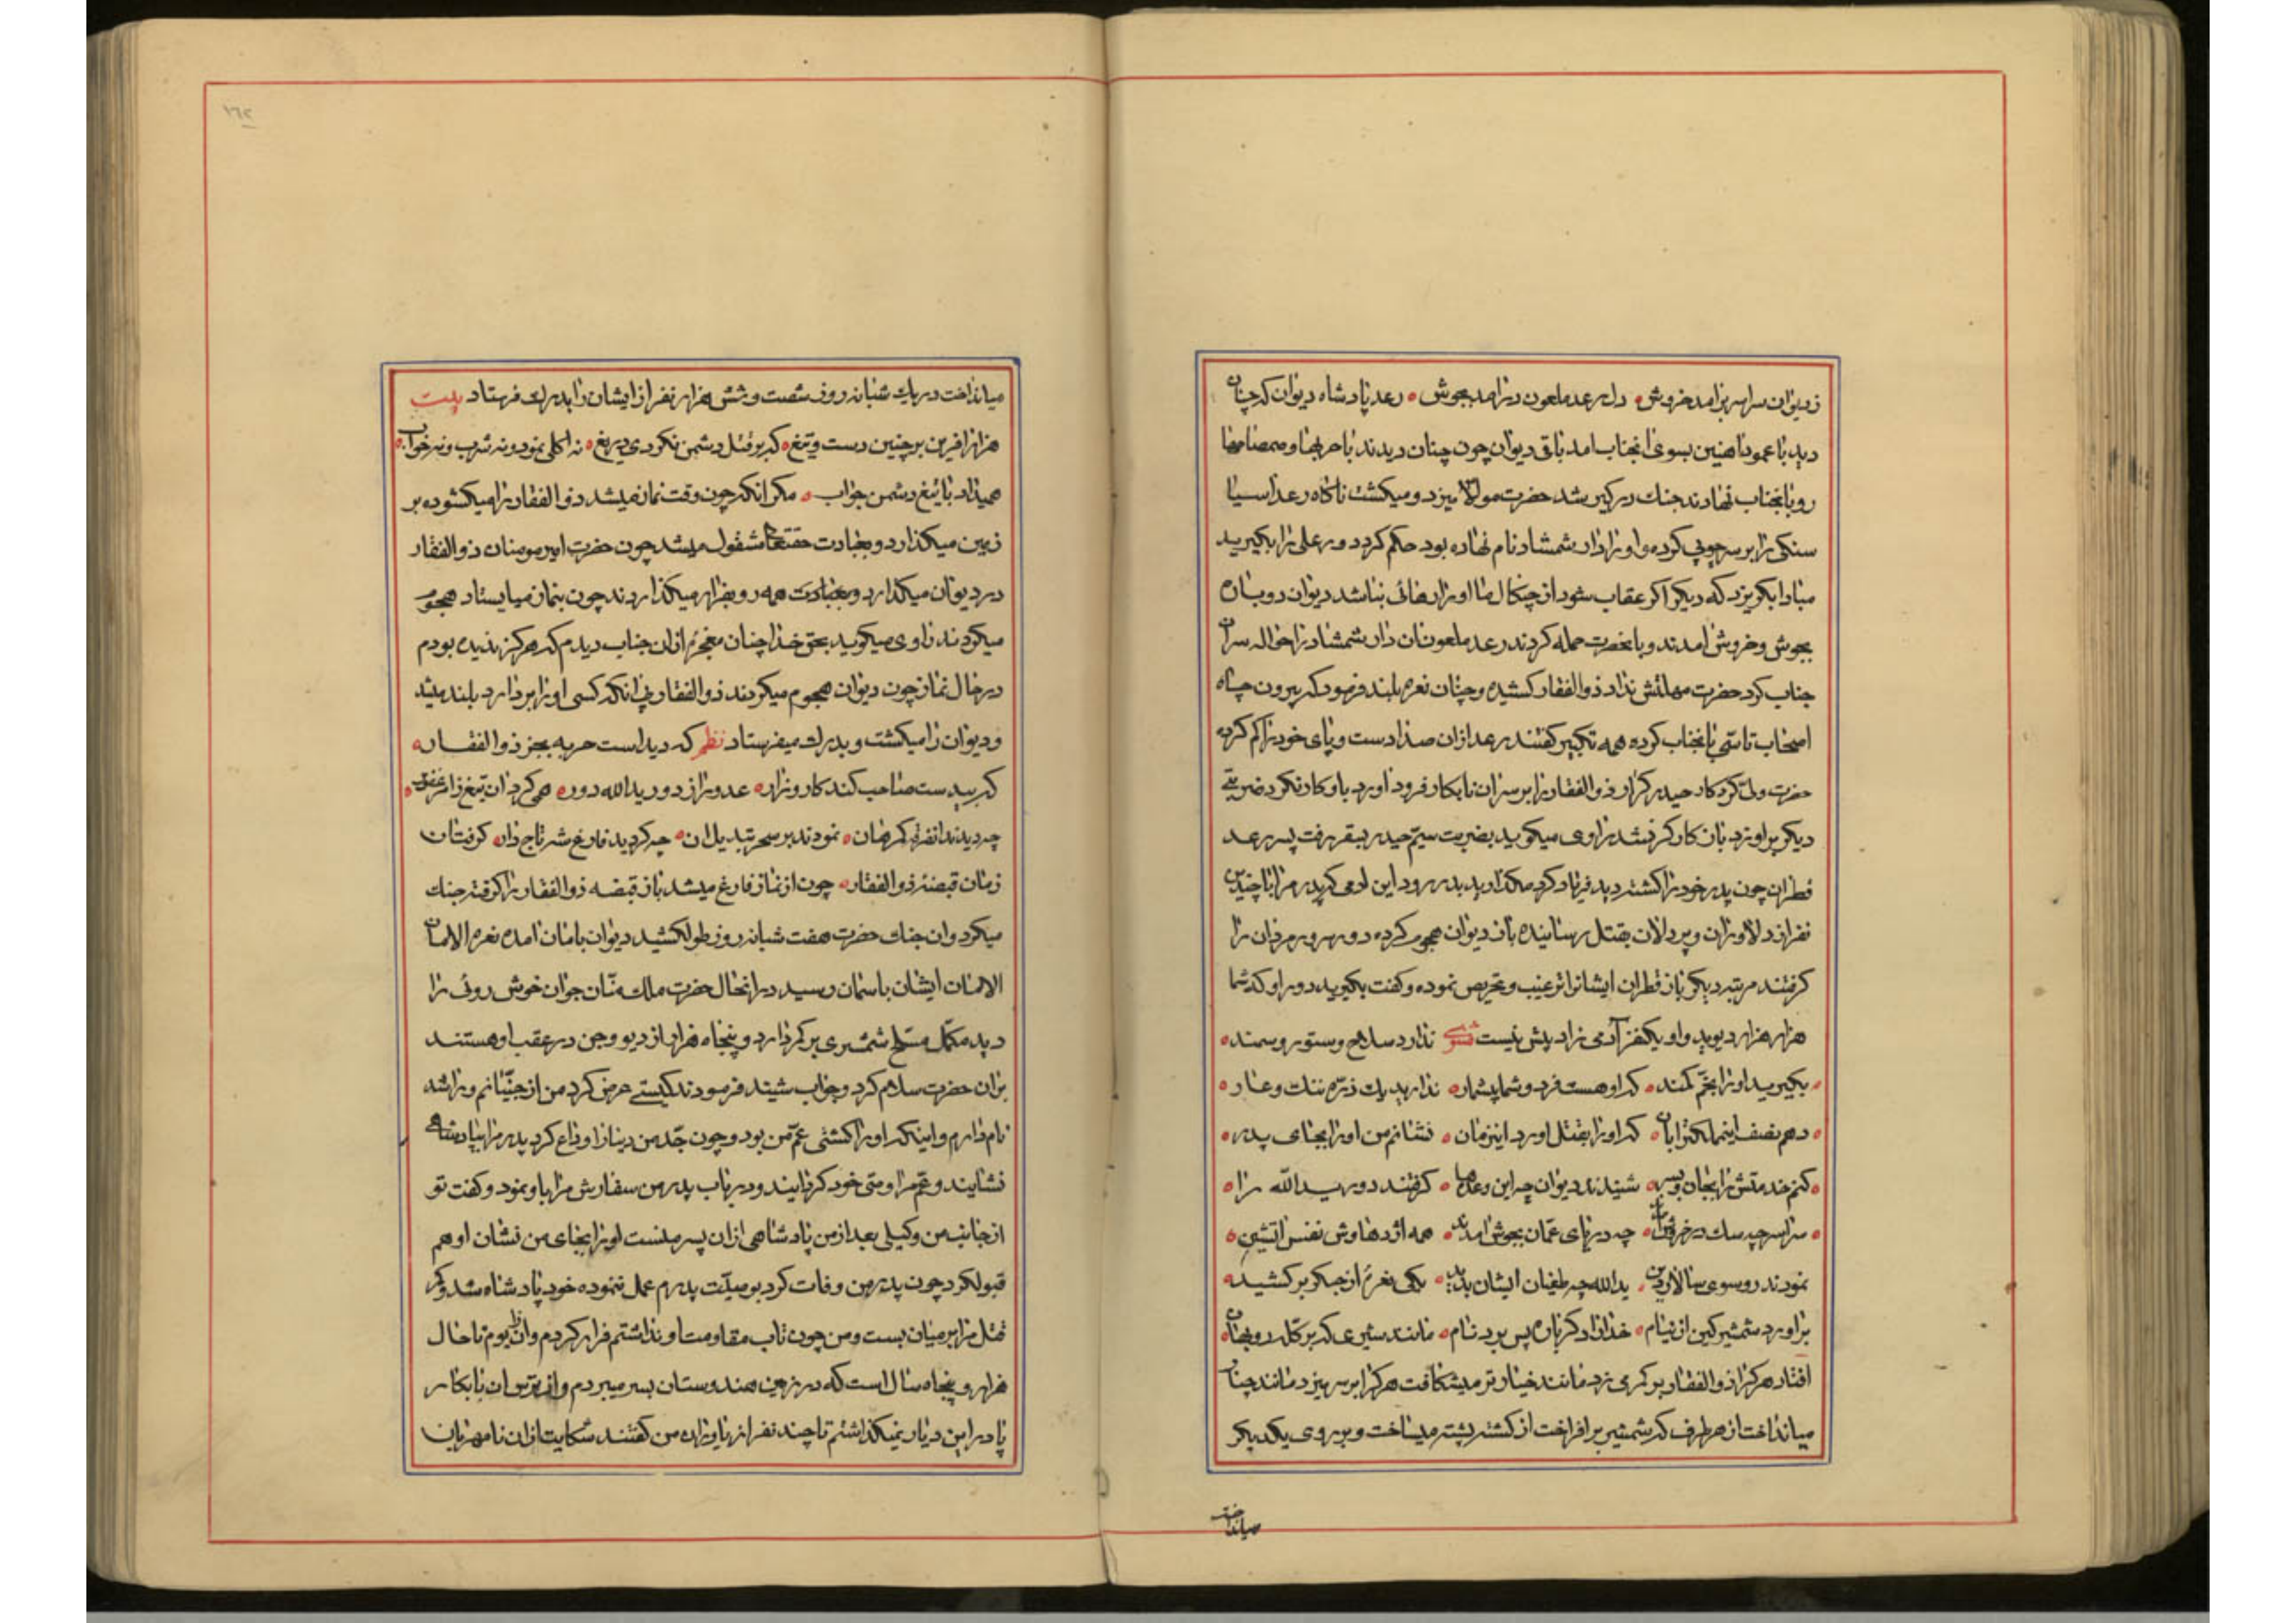 ز دیوان سراسر برامد خروش دل رعد ملعون درامد بجوش رعد پادشاه دیوان که چنان
دید با عمود اهنین بسوی انجناب امد باقی دیوان چون چنان دیدند با حربها و صمصامها
رو بانجناب نهادند جنك در کیر شد حضرت مولا میزد و میکشت ناکاه رعد اسیا
سنکی را بر سر چوبی کرده و او را دار شمشاد نام نهاده بود حکم کرد دور علی را بکیرید
مبادا بکریزد که دیکر اکر عقاب شود از چنکال ما او را رهائی نباشد دیوان دوباره
بجوش و خروش امدند و بانحضرت حمله کردند رعد ملعون ان دار شمشاد را حواله سر ان
جناب کرد حضرت مهلتش نداد ذوالفقار کشیده و چنان نعره بلند فرمود که بیرون چاه
اصحاب تاسی بانجناب کرده همه تکبیر کفتند رعد ازان صدا دست و پای خود را کم کرده
حضرت ولی کردکار حیدر کرار ذوالفقار را بر سر ان نابکار فرود اورد باو کار نکرد ضربتی
دیکر براورد بان کارکر نشد راوی میکوید بضربت سیم حیدر بسقر رفت پسر رعد
قطران چون پدر خود را کشته دید فریاد کرد مکذارید بدر رود این ادمی که پدر مرا با چندین
نفر از دلاوران و پردلان بقتل رسانیده باز دیوان هجوم کرده دور سرور مردان را
کرفتند مرتبه دیکر باز قطران ایشانرا ترغیب و تحریص نموده و کفت بکیرید دور او که شما
هزار هزار دیوید و او یکنفر آدمی زاد بیش نیست ندارد سلاح و ستور و سمند
بکیرید او را بخم کمند که او هست فرد و شما بیشمار ندارید یك ذره ننك و عار
دهم نصف اینملکترا بان که او را بقتل اورد اینزمان نشانم من او را بجای پدر
کنم خدمتش را بجان و بسر شنیدند دیوان چه این وعدها کرفتند دور یدالله را
سراسر چه سك در خروش امدند چه دریای عمان بجوش امدند همه اژدهاوش نفس اتشین
نمودند رو سوی سالار دین یدالله چه طغیان ایشان بدید یکی نعره از جکر بر کشید
براورد شمشیر کین از نیام خدا را دکرباره پس برد نام مانند شیری که بر کله روبهان
افتاد هر کرا ذوالفقار بر کمر میزد مانند خیار تر میشکافت هر کرا بر سر میزد مانند چنار
میانداخت از هر طرف که شمشیر بر افراخت از کشته پشته میساخت و بر روی یکدیکر
میانداخت
میانداخت در یك شبانه روز شصت و شش هزار نفر از ایشان را بدرك فرستاد بیت
هزار افرین بر چنین دست و تیغ که بر قتل دشمن نکردی دریغ نه اکلی نمود و نه شرب و نه خواب
همیداد با تیغ دشمن جواب مکر انکه چون وقت نماز میشد ذوالفقار را میکشود بر
زمین میکذارد و بعبادت حقتعالی مشغول میشد چون حضرت امیر مومنان ذوالفقار
در دیوان میکذارد و بعبادت همه رو بفرار میکذاردند چون بنماز میایستاد هجوم
میکردند راوی میکوید بحق خدا چنان معجزه ازان جناب دیدم که هرکز ندیده بودم
در حال نماز چون دیوان هجوم میکردند ذوالفقار بی انکه کسی او را بردارد بلند میشد
و دیوان را میکشت و بدرك میفرستاد نظم که دیداست حربه بجز ذوالفقار
که بیدست صاحب کند کارو زار عدو را ز دور یدالله دور همی کرد ان تیغ
چه دیدند انقره کمرهان نمودند بر سحر تبدیل ان چه کردید فارغ شه تاج دار کرفت ان
زمان قبضئه ذوالفقار چون از نماز فارغ میشد باز قبضه ذوالفقار را کرفته جنك
میکرد وان جنك حضرت هفت شبانه روز طول کشید دیوان بامان امده نعره الامان
الامان ایشان باسمان رسید در انحال حضرت ملك منّان جوان خوش روئی را
دید مکمّل مسلح شمشیری بر کر دارد و پنجاه هزار از دیو و جن در عقب او هستند
بران حضرت سلام کرد و جواب شنید فرمودند کیستی عرض کرد من از جنّیانم و راشد
نام دارم و اینکه او را کشتی عمّ من بود و چون جد من دینا را وداع کرد پدر مرا بپادشاهی
نشایند و عم مرا وصی خود کردایند و در باب پدر من سفارش مرا باو نمود و کفت تو
از جانب من وکیلی بعد از من پادشاهی ازان پسر منست او را بجای من نشان او هم
قبول کرد چون پدر من وفات کرد بوصیّت پدرم عمل ننموده خود پادشاه شد و کمر
قتل مرا بر میان بست و من چون تاب مقاومت او نداشتم فرار کردم و ان بوم تا حال
هزار و پنجاه سال است که در زمین هندوستان بسر میبردم و از ترس ان نابکار
پا در این دیار نمیکذاشتم تا چند نفر از یاوران من کفتند شکایت ازان نامهربان